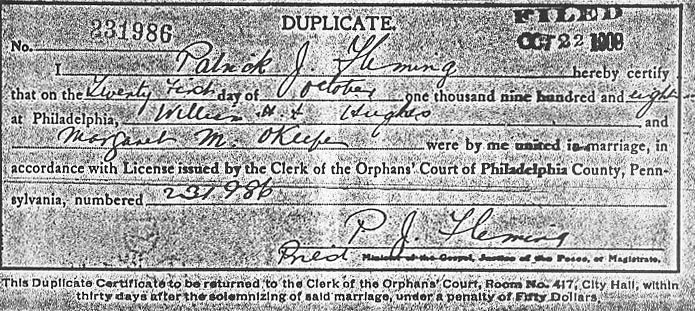 DUPLICATE.
FILED
OCT 22 1908
No. 231986
I Patrick J. Fleming hereby certify
that on the Twenty first day of October one thousand nine hundred and eight
at Philadelphia, William H. Hughes and
Margaret M. O'Keefe were by me united in marriage, in
accordance with License issued by the Clerk of the Orphans' Court of Philadelphia County, Penn-
sylvania, numbered 231986
P. J. Fleming
Priest Minister of the Gospel, Justice of the Peace, or Magistrate.
This Duplicate Certificate to be returned to the Clerk of the Orphans' Court, Room No. 417, City Hall, within
thirty days after the solemnizing of said marriage, under a penalty of Fifty Dollars.